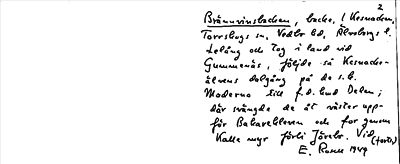 2
Brännvinsbacken, backe, i Kesnacken,
Torrskogs sn, Vedbo hd, Älvsborgs l.
Lelång och tog i land vid
Gummenäs, följde så Kesnacks-
älvens dalgång på de s.k.
Moderna till f.d. hund Dalen;
där svängde de åt väster upp-
för Bakarekleven och for genom
Kalle myr förbi Järebr. Vid (forts)
E. Rosell 1949